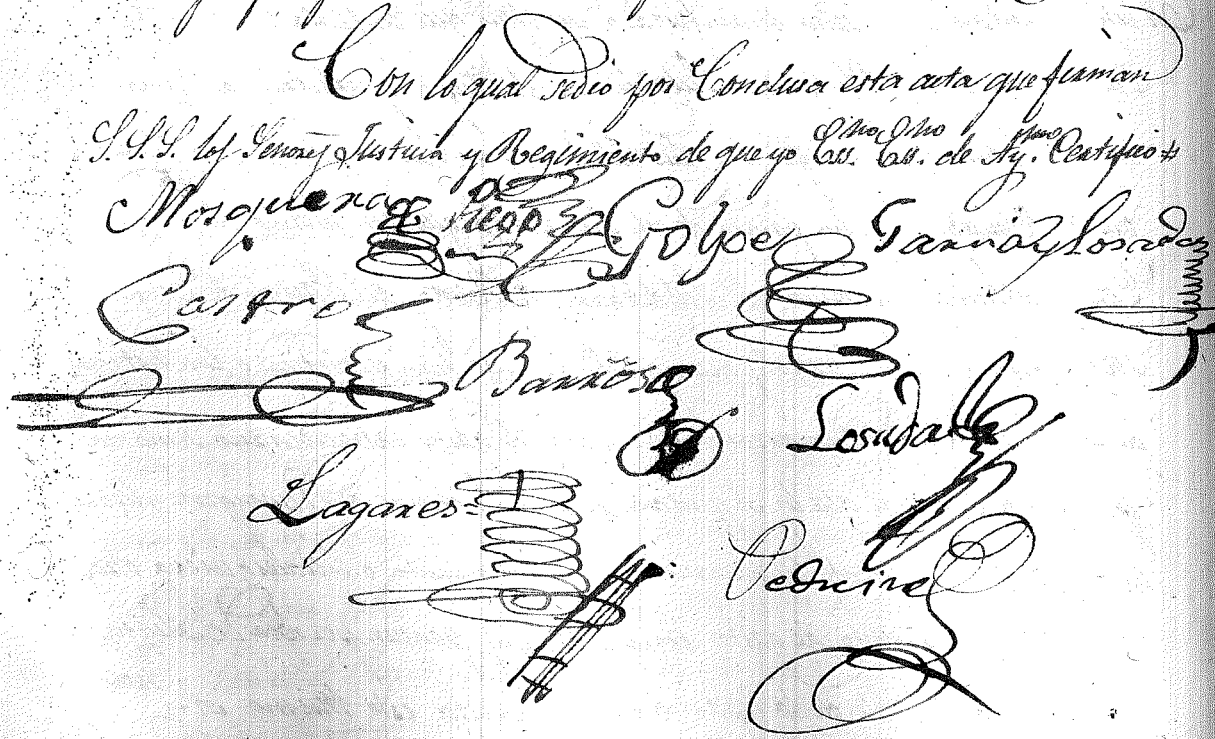 Con lo qual sedio por Conclusa esta acta que firman
S.S.S. los Señores Justicia y Regimiento de que yo Ess.no Ess.no de Ay.mo Certifico
Mosquera Golpe Garcia y Losada
Castro
Barros
Losada
Lagares
Pedreira